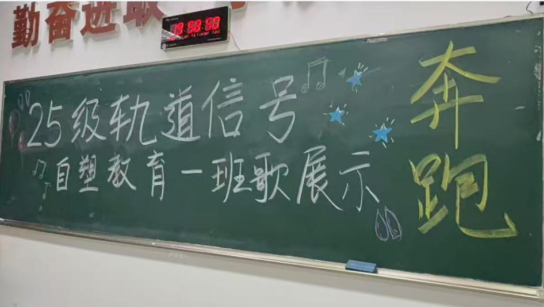 勤奋进取
25级轨道信号
自塑教育一班歌展示
奔跑